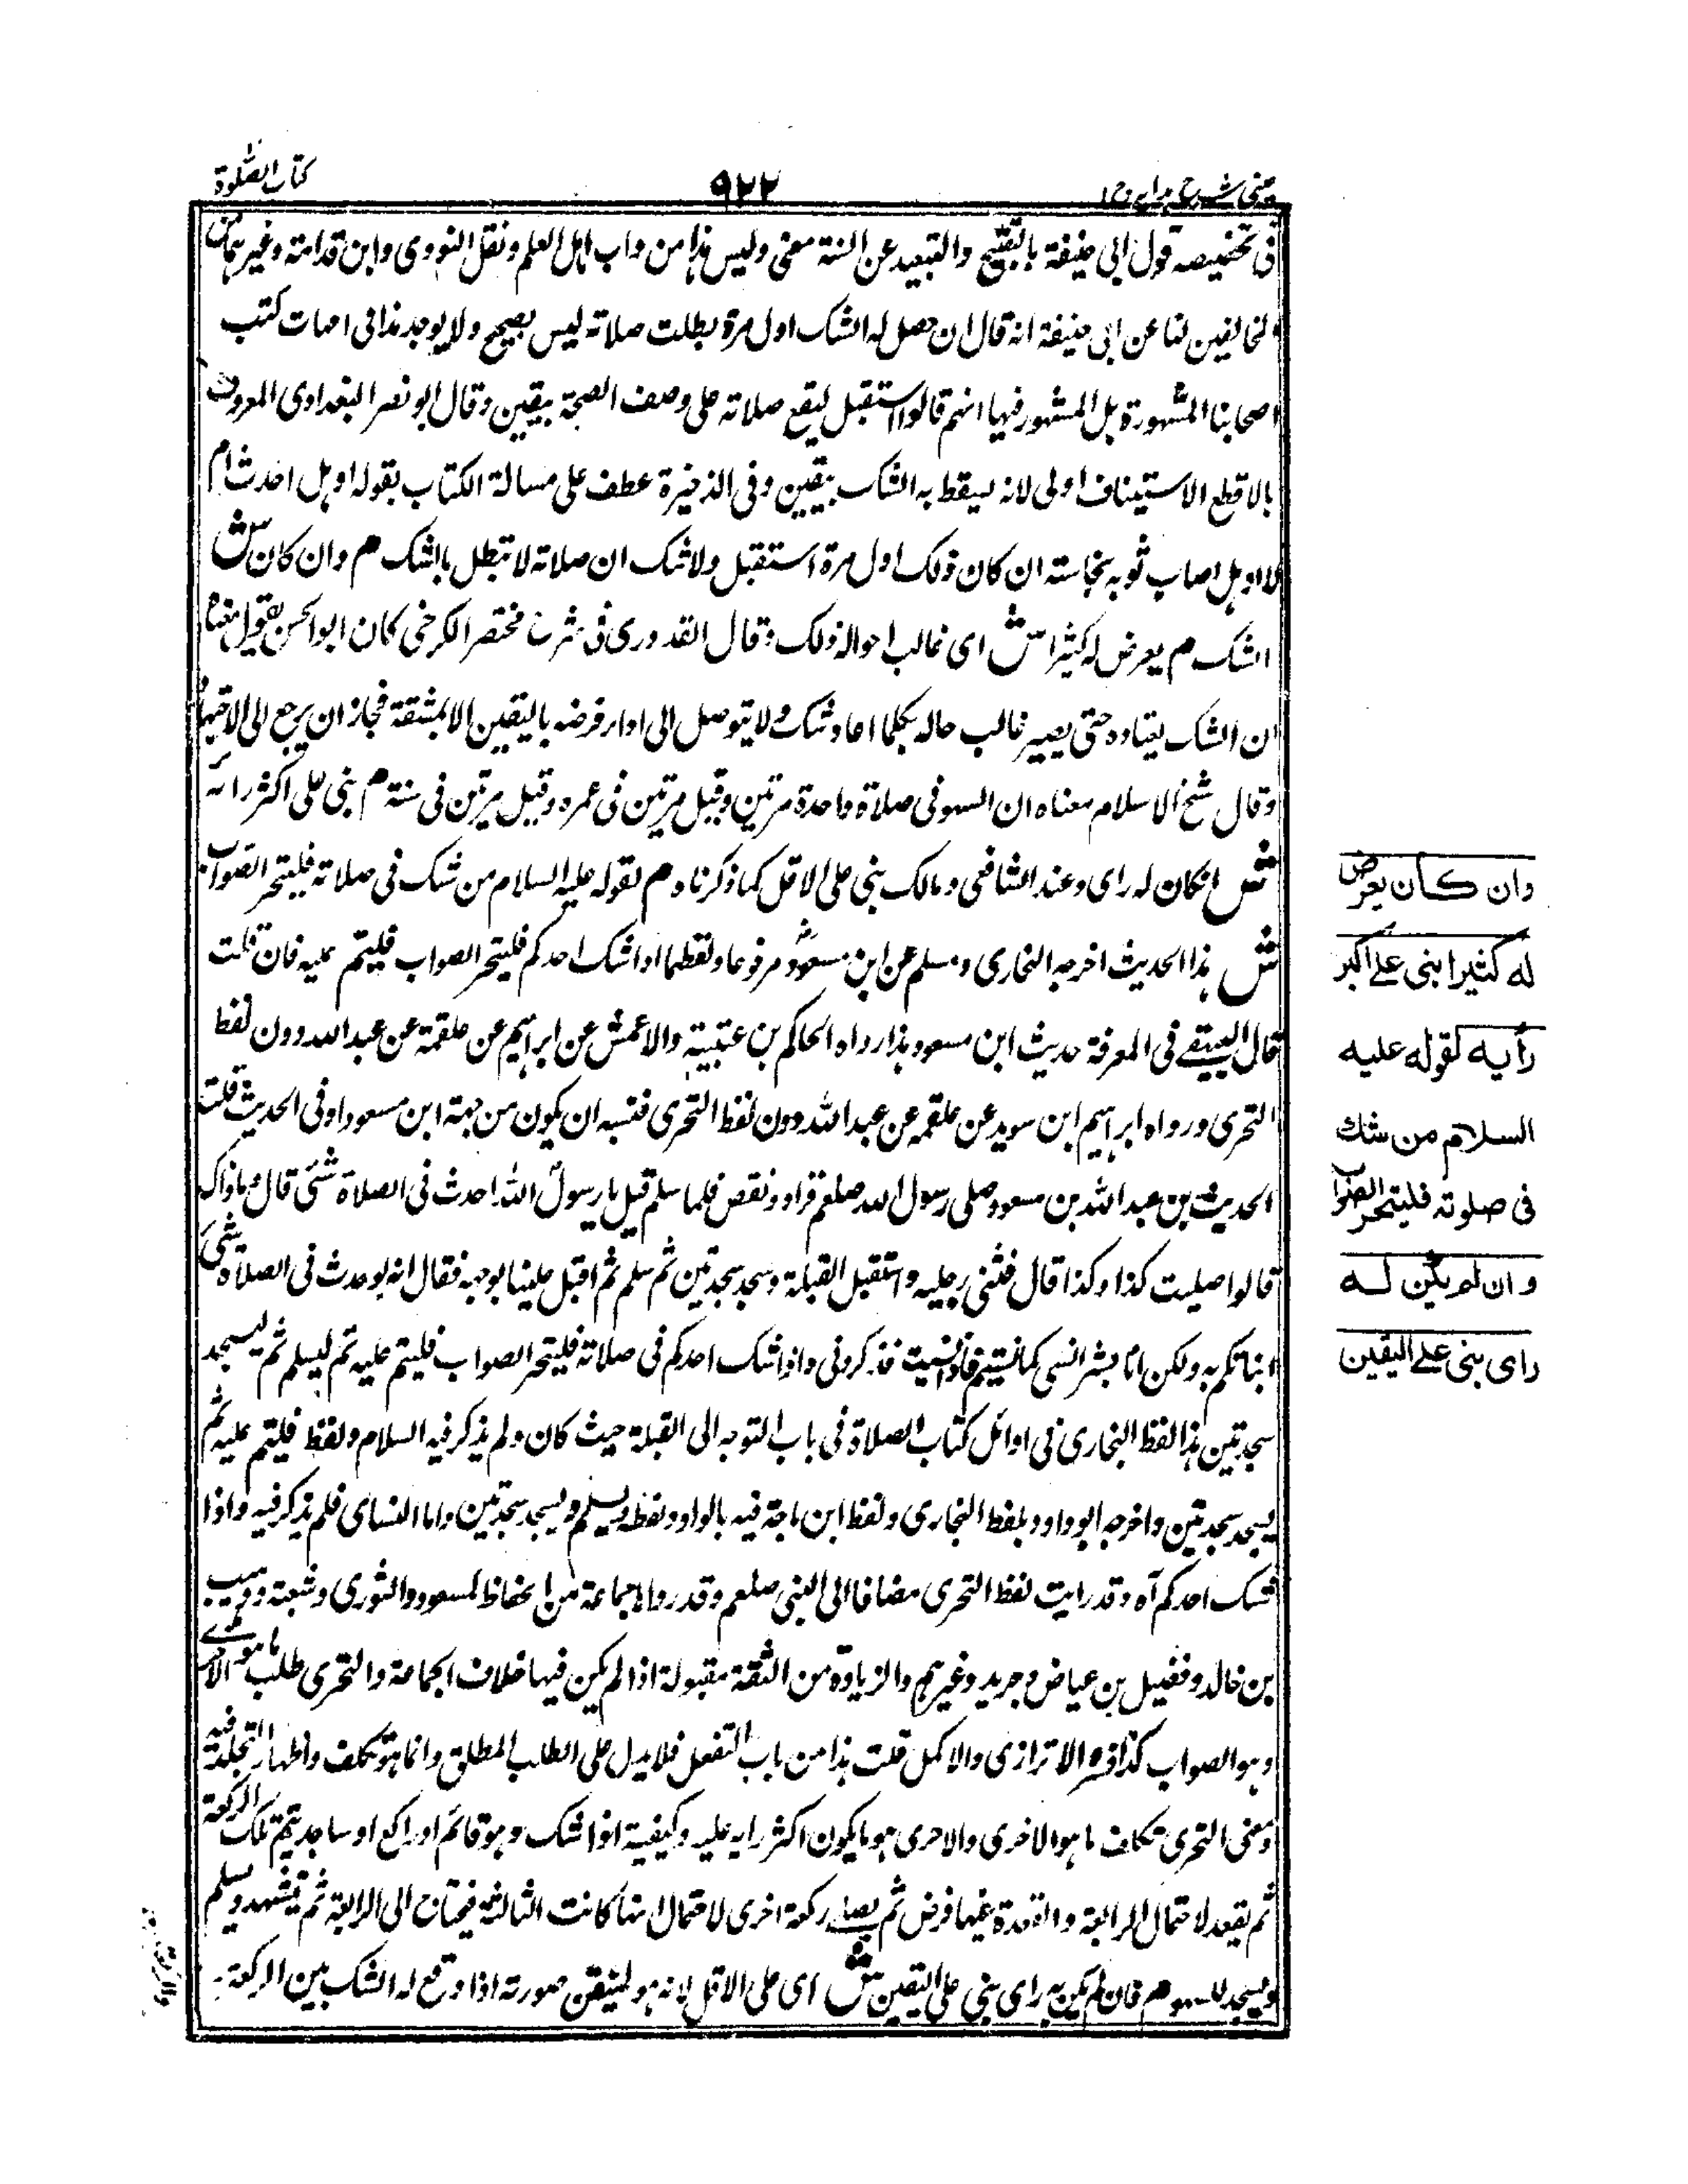 عینی شرح ہدایہ ج ١
٩٢٢
كتاب الصلوة
فى تخصيصه قول ابى حنيفة بالتقبيح والتبعيد عن السنة معنى وليس هذا من داب اهل العلم ونقل النووى وابن قدامة وغيرهما من
المخالفين لنا عن ابى حنيفة انه قال ان حصل له الشك اول مرة بطلت صلاته ليس بصحيح ولا يوجد هذا فى امهات كتب
اصحابنا المشهورة بل المشهور فيها انهم قالوا استقبل ليقع صلاته على وصف الصحة بيقين وقال ابو نصر البغدادى المعروف
بالاقطع الاستيناف اولى لانه يسقط به الشك بيقين وفى الذخيرة عطف على مسالة الكتاب بقوله او هل احدث ام
لا او هل اصاب ثوبه نجاسته ان كان ذلك اول مرة استقبل ولا شك ان صلاته لا تبطل بالشك م وان كان ش
الشك م يعرض له كثيرا ش اى غالب احواله ذلك وقال القدورى فى شرح مختصر الكرخى كان ابو الحسن يقول معناه
ان الشك يعتاده حتى يصير غالب حاله بكلما اعاد شك ولا يتوصل الى اداء فرضه باليقين الا بمشقة فجاز ان يرجع الى الاجتهاد
وقال شيخ الاسلام معناه ان السهو فى صلاة واحدة مرتين وقيل مرتين فى عمره وقيل مرتين فى سنة م بنى على اكثر رائه
ش انكان له راى وعند الشافعى ومالك بنى على الاقل كما ذكرناه م لقوله عليه السلام من شك فى صلاته فليتحر الصواب
ش هذا الحديث اخرجه البخارى ومسلم عن ابن مسعودؓ مرفوعا ولفظهما اذا شك احدكم فليتحر الصواب فليتم عليه فان قلت
قال البيهقے فى المعرفة حديث ابن مسعود هذا رواه الحاكم بن عتيبة والاعمش عن ابراهيم عن علقمة عن عبد الله دون لفظ
التحرى ورواه ابراهيم ابن سويد عن علقمه عن عبد الله دون لفظ التحرى فنسبه ان يكون من جهة ابن مسعود او فى الحديث قلت
الحديث بن عبد الله بن مسعود صلى رسول الله صلعم فزاد ونقص فلما سلم قيل يا رسول الله احدث فى الصلاة شئى قال وما ذاك
قالوا صليت كذا وكذا قال فثنى رجليه واستقبل القبلة وسجد سجدتين ثم سلم ثم اقبل علينا بوجهه فقال انه لو حدث فى الصلاة شئ
انباتكم به ولكن انا بشر انسى كما تنسيتم فاذا نسيت فذكرونى واذا شك احدكم فى صلاته فليتحر الصواب فليتم عليه ثم ليسلم ثم ليسجد
سجدتين هذا لفظ البخارى فى اوائل كتاب الصلاة فى باب التوجه الى القبلة حيث كان ولم يذكر فيه السلام ولفظ فليتم عليه ثم
يسجد سجدتين واخرجه ابو داود بلفظ البخارى ولفظ ابن ماجة فيه بالواو ولفظه ويسلم ويسجد سجدتين واما النساى فلم يذكر فيه واذا
شك احدكم آه وقد رايت لفظ التحرى مضافا الى النبى صلعم وقد رواه جماعة من الحفاظ كمسعود والثورى وشعبة ووهيب
بن خالد وفضيل بن عياض وجريد وغيرهم والزيادة من الثقة مقبولة اذا لم يكن فيها خلاف الجماعة والتحرى طلب ما هو الاحرے
وهو الصواب كذا فسره الاترازى والاكمل قلت هذا من باب التفعل فلا يدل على الطلب المطلق وانما هو تكلف واظهار التجلد فيه
ومعنى التحرى تكلف ما هو الاخرى والاحرى هو ما يكون اكثر رايه عليه وكيفية اذا شك وهو قائم او راكع او ساجد يتم تلك الركعة
ثم يقعد لاحتمال الرابعة والقعدة فيها فرض ثم يصلے ركعة اخرى لاحتمال انها كانت الثالثة فيحتاج الى الرابعة ثم يتشهد ويسلم
ويسجد للسهو م فان لم يكن له راى بنى على اليقين ش اى على الاقل لانه هو المتيقن صورته اذا وقع له الشك بين الركعة
وان كان يعرض
له كثيرا بنى علے اكبر
رأيه لقوله عليه
السلام من شك
فى صلوته فليتحر الصواب
وان لم يكن له
راى بنى علے اليقين